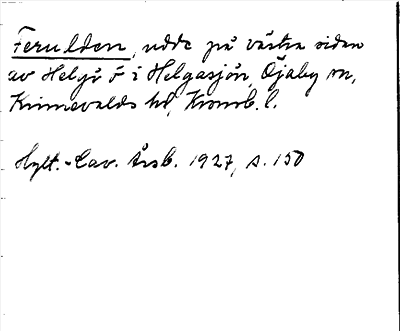 Ferulden, udde på västra sidan
av Helgö ö i Helgasjön, Öjaby sn,
Kinnevalds hd, Kronob. l.
Hylt.-Cav. Årsb. 1927, s. 150